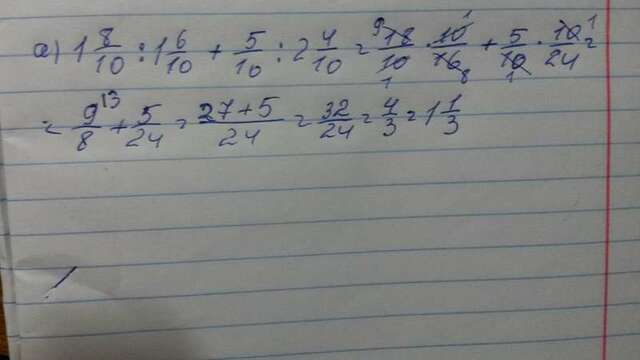 а) 1 8/10 : 1 6/10 + 5/10 : 2 4/10 = 18/10 · 10/16 + 5/10 · 10/24 =
= 9/8 + 5/24 = 27+5/24 = 32/24 = 4/3 = 1 1/3